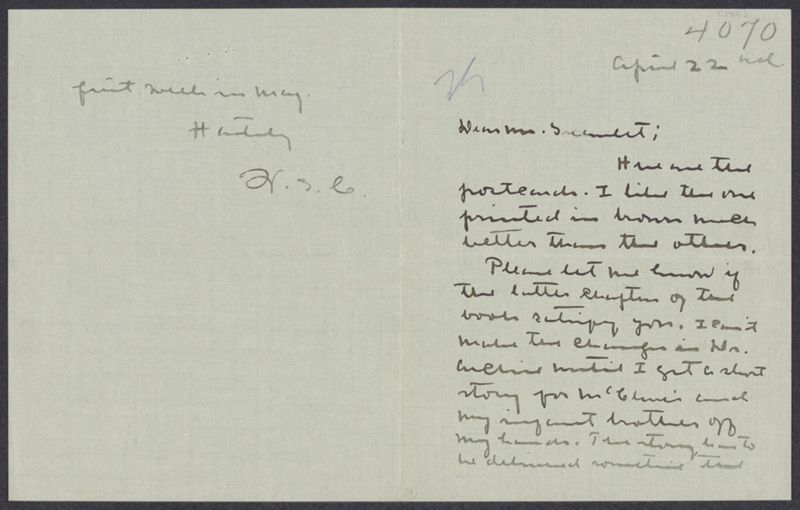 4070
April 22nd
Dear Mr. Scaudet;
Here are the
postcards. I like the one
printed in brown much
better than the others.
Please let me know if
the latter chapters of the
book satisfy you. I can't
make the changes in Dr.
Archie until I get a short
story for McClure's and
my infant brother off
my hands. The story has to
be delivered sometime the
first week in May.
Hastily
W. S. C.